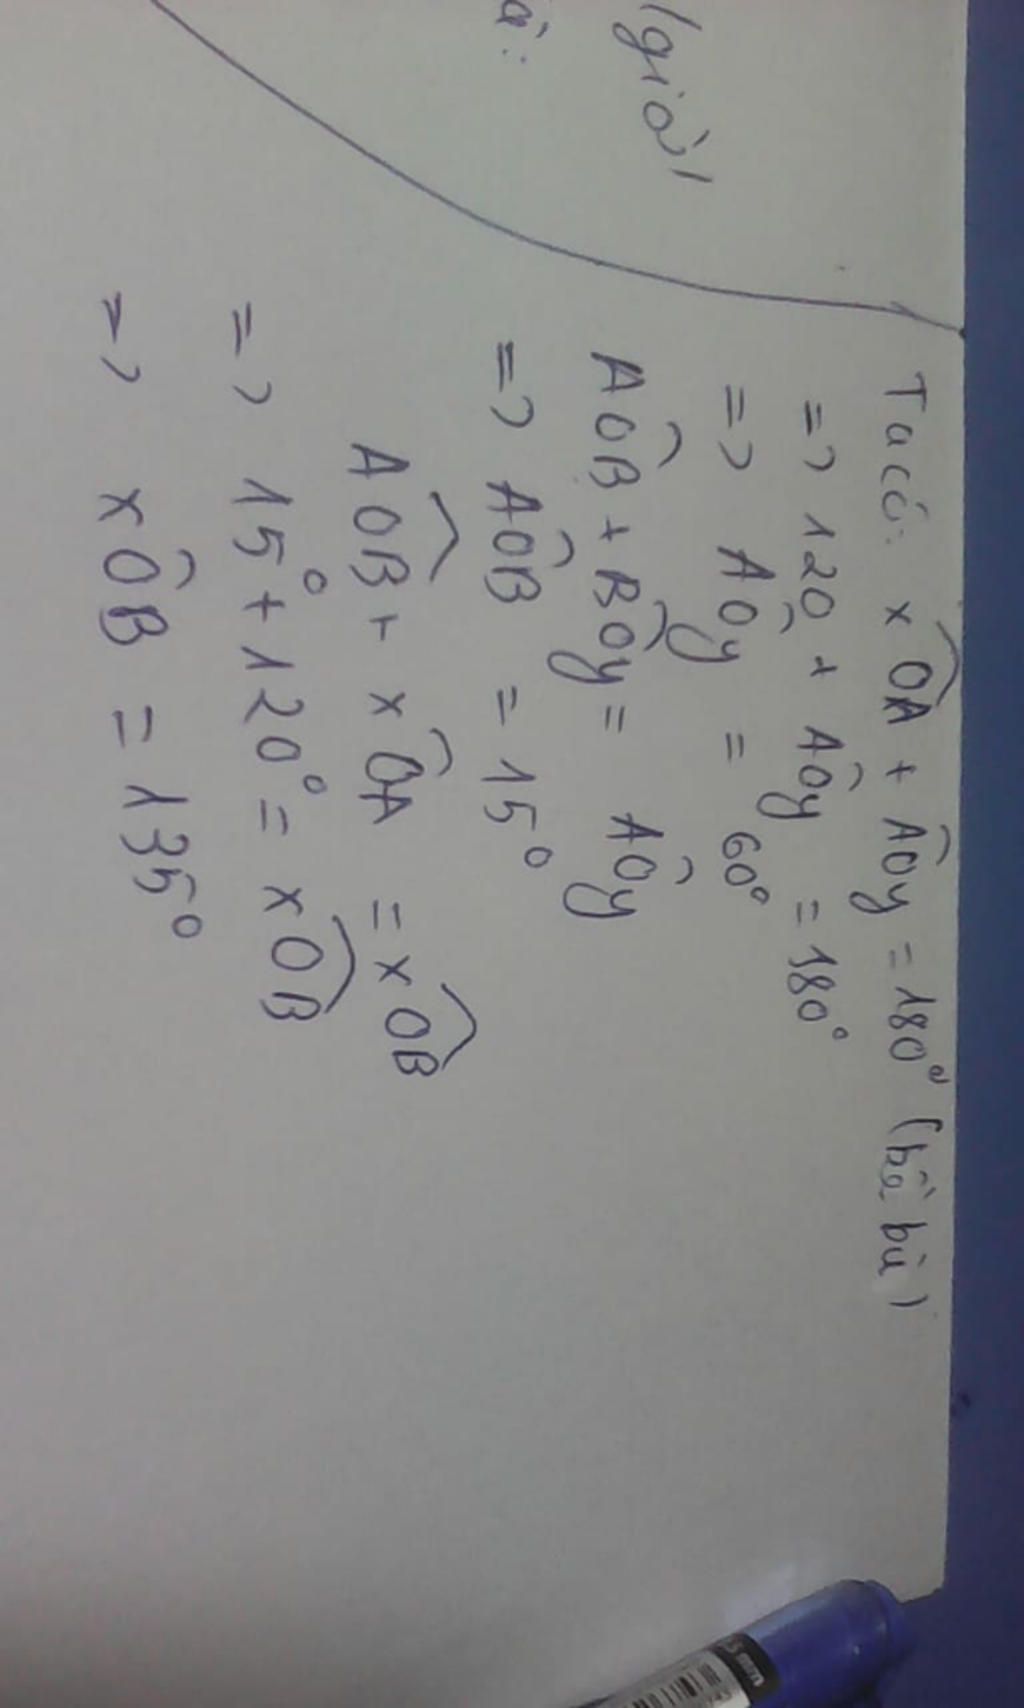 /giải/
Ta có: xÔA + AÔy = 180° (kề bù)
=> 120 + AÔy = 180°
=> AÔy = 60°
AÔB + BÔy = AÔy
=> AÔB = 15°
AÔB + xÔA = xÔB
=> 15° + 120° = xÔB
=> xÔB = 135°